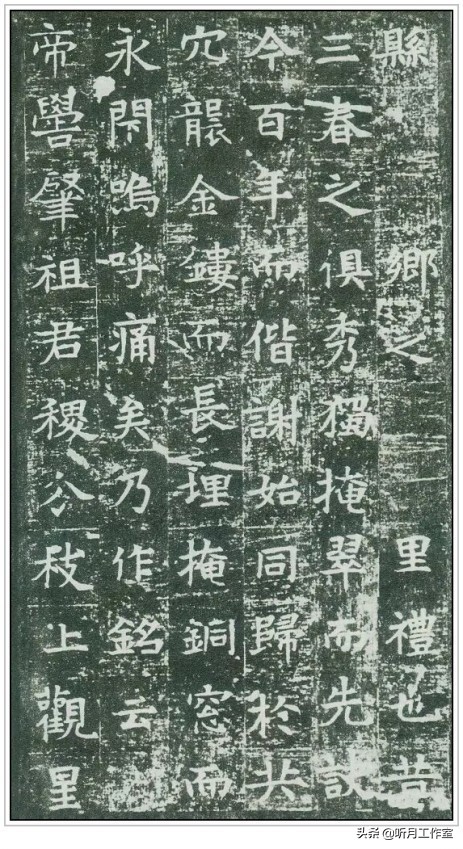 縣 鄉之 里禮也昔
三春之俱秀獨掩翠而先訣
今百年而偕謝始同歸於共
穴襲金鏤而長埋掩銅窓而
永閇嗚呼痛矣乃作銘云
帝嚳肇祖君稷分枝上觀星
头条 @听月工作室